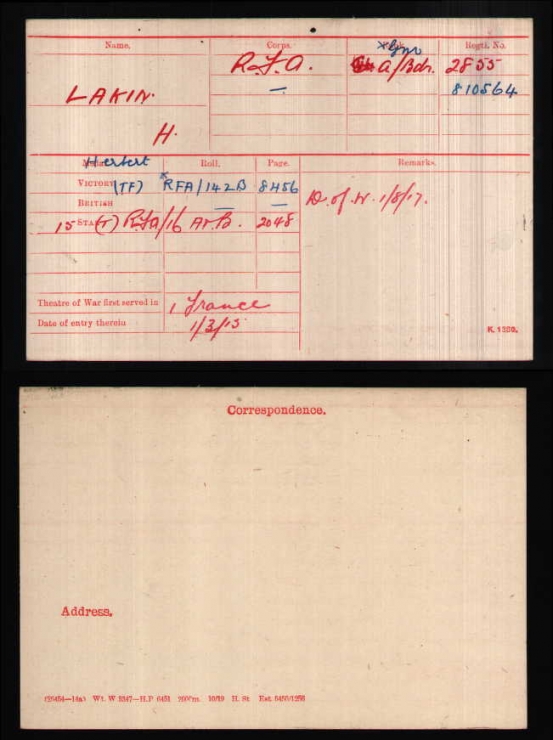 Name. Corps. Rank. Regtl. No.
R.F.A. A/Bdr. 2855
× Gnr
LAKIN. — 810564
H.
Herbert
Medal. Roll. Page. Remarks.
VICTORY (TF) RFA/142B 8456
BRITISH — —
D. of W. 1/8/17.
15 STAR (T) RFA/16 Ar. B. 2048
Theatre of War first served in 1, France
Date of entry therein 1/3/15
K. 1380.
Correspondence.
Address.
Wt. W 5347—H.P 6451 10/19 H. St